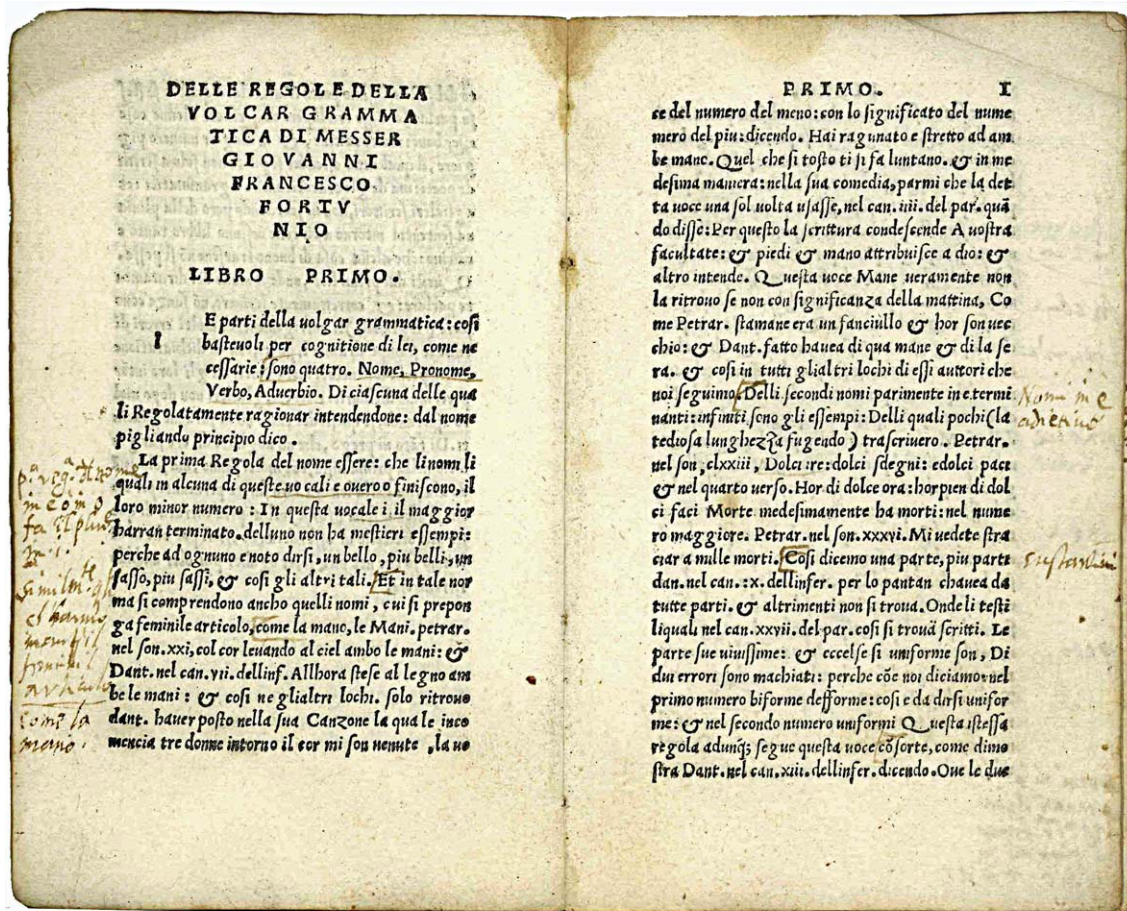 DELLE REGOLE DELLA
VOLGAR GRAMMA
TICA DI MESSER
GIOVANNI
FRANCESCO
FORTV
NIO
LIBRO PRIMO.
E parti della volgar grammatica: cosi
basteuoli per cognitione di lei, come ne
cessarie: sono quatro. Nome, Pronome,
Verbo, Aduerbio. Di ciascuna delle qua
li Regolatamente ragionar intendendone: dal nome
pigliando principio dico.
La prima Regola del nome essere: che li nomi li
quali in alcuna di queste uocali e ouero o finiscono, il
loro minor numero: In questa uocale i, il maggior
harran terminato. delluno non ha mestieri essempi:
perche ad ognuno e noto dirsi, un bello, piu belli, un
sasso, piu sassi, & cosi gli altri tali. Et in tale nor
ma si comprendono ancho quelli nomi, cui si prepon
ga feminile articolo, come la mano, le Mani. petrar.
nel son. xxi, col cor leuando al ciel ambo le mani: &
Dant. nel can. vii. dellinf. Allhora stese al legno am
be le mani: & cosi ne glialtri lochi. solo ritrouo
dant. hauer posto nella sua Canzone la quale inco
mencia tre donne intorno il cor mi son uenute, la uo
p.ª reg.ª
in e o in o
fa il plur
in .i.
feminil
articulo
come la
mano.
PRIMO. I
ce del numero del meno: con lo significato del nume
mero del piu: dicendo. Hai ragunato e stretto ad am
be mane. Quel che si tosto ti si fa luntano. & in me
desima maniera: nella sua comedia, parmi che la det
ta uoce una sol uolta usasse, nel can. iiii. del par. quā
do disse: Per questo la scrittura condescende A uostra
facultate: & piedi & mano attribuisce a dio: &
altro intende. Questa uoce Mane ueramente non
la ritrouo se non con significanza della mattina, Co
me Petrar. stamane era un fanciullo & hor son uec
chio: & Dant. fatto hauea di qua mane & di la se
ra. & cosi in tutti glialtri lochi di essi auttori che
noi seguimo. Delli secondi nomi parimente in e termi
nanti: infiniti sono gli essempi: Delli quali pochi (la
tediosa lunghezza fugendo) trascriuero. Petrar.
nel son, clxxiii, Dolci ire: dolci sdegni: e dolci paci
& nel quarto uerso. Hor di dolce ora: hor pien di dol
ci faci Morte medesimamente ha morti: nel nume
ro maggiore. Petrar. nel son. xxxvi. Mi uedete stra
ciar a mille morti. Cosi dicemo una parte, piu parte
dan. nel can. :x. dellinfer. per lo pantan chauea da
tutte parti. & altrimenti non si troua. Onde li testi
liquali nel can. xxvii. del par. cosi si trouā scritti. Le
parte sue uiuissime: & eccelse si uniforme son, Di
dui errori sono machiati: perche cōe noi diciamo: nel
primo numero biforme defforme: cosi e da dirsi unifor
me: & nel secondo numero uniformi Questa istessa
regola adunq; segue questa uoce cōsorte, come dimo
stra Dant. nel can. xiii. dellinfer. dicendo. Oue le due
Nomi in e
adietiui
sustantiui